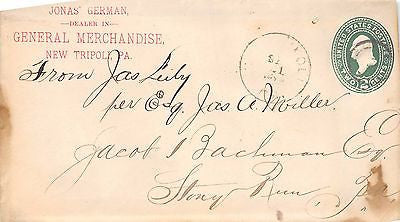 JONAS' GERMAN,
DEALER IN
GENERAL MERCHANDISE,
NEW TRIPOLI, PA.
UNITED STATES
From Jas Lily
per Esq. Jas A Miller.
Jacob Bachman Esq
Stony Run,